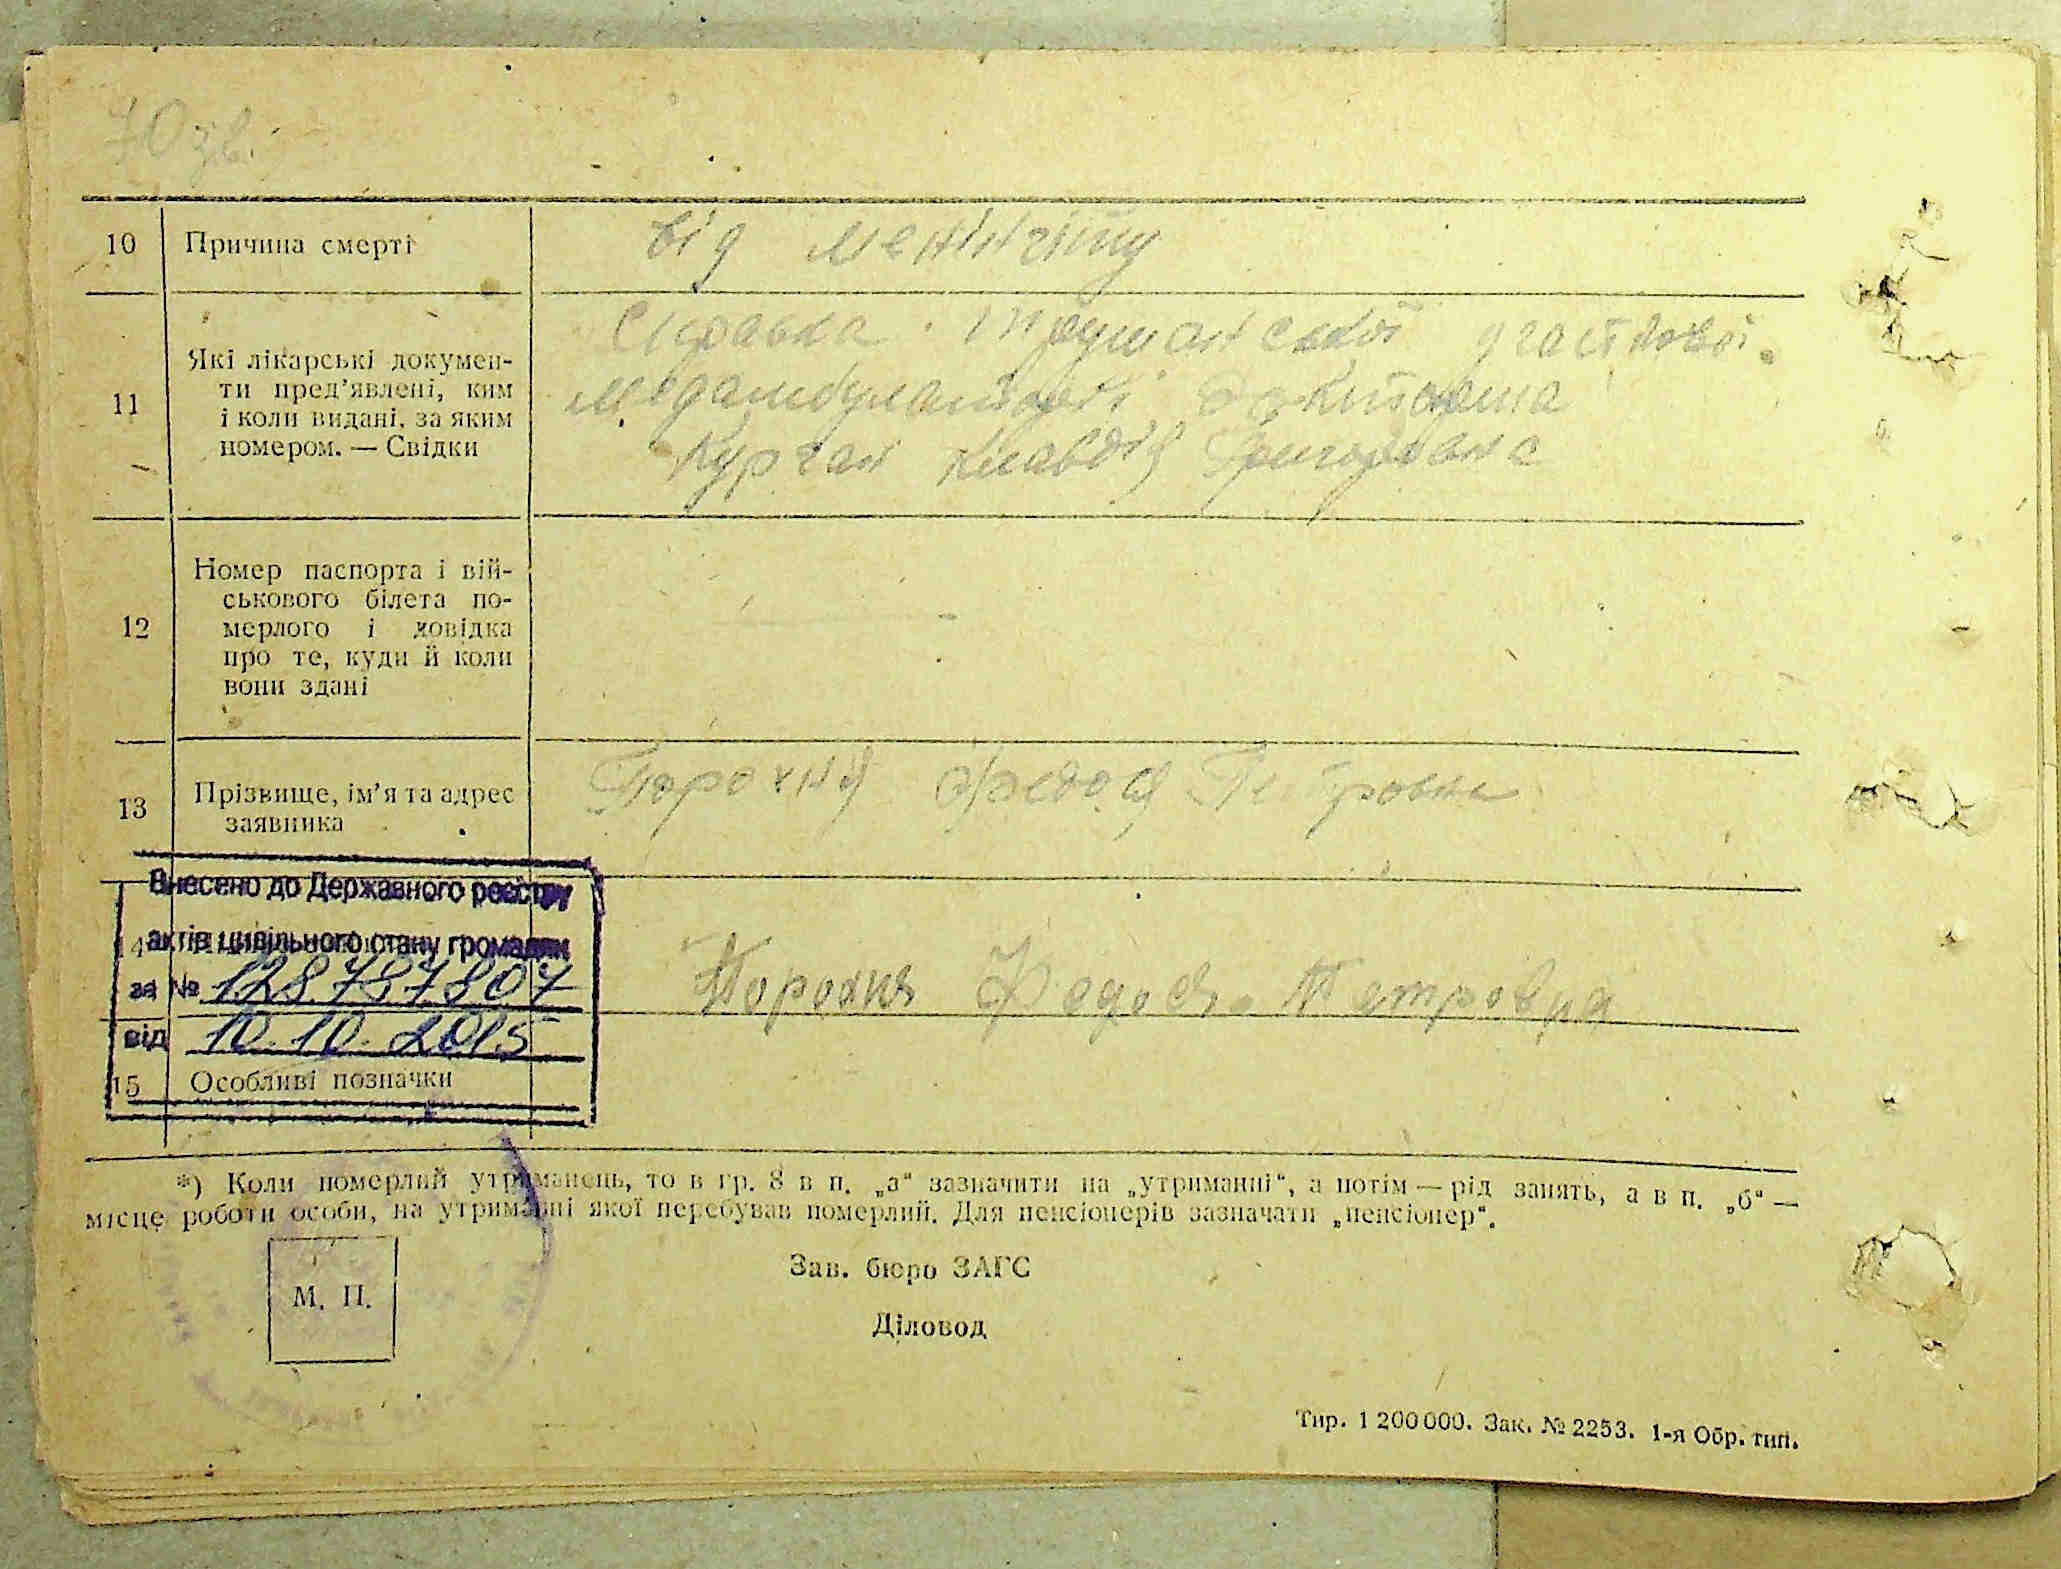 70 зв.
10 Причина смерті від менінгіту
11 Які лікарські документи пред'явлені, ким і коли видані, за яким номером. — Свідки
Справка участкової
Медамбулаторії
Курган Клавдія Григоровна
12 Номер паспорта і вій-
ськового білета по-
мерлого і довідка
про те, куди й коли
вони здані
13 Прізвище, ім'я та адрес
заявника
Порохня Федося Петровна
Внесено до Державного реєстру
14 актів цивільного стану громадян
за № 128787807
Порохня Федося Петровна
від 10.10.2015
15 Особливі позначки
*) Коли померлий утриманець, то в гр. 8 в п. „а“ зазначити на „утриманні“, а потім — рід занять, а в п. „б“ —
місце роботи особи, на утриманні якої перебував померлий. Для пенсіонерів зазначати „пенсіонер“.
Зав. бюро ЗАГС
М. П.
Діловод
Тир. 1 200 000. Зак. № 2253. 1-я Обр. тип.